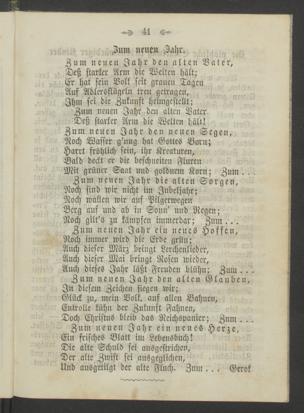 41
Zum neuen Jahr.
Zum neuen Jahr den alten Vater,
Deß starker Arm die Welten hält;
Er hat sein Volk seit grauen Tagen
Auf Adlersflügeln treu getragen,
Ihm sei die Zukunft heimgestellt;
Zum neuen Jahr den alten Vater
Deß starker Arm die Welten hält!
Zum neuen Jahr den neuen Segen,
Noch Wasser g'nug hat Gottes Born;
Harret fröhlich sein, ihr Kreaturen,
Bald deckt er die beschneiten Fluren
Mit grüner Saat und goldnem Korn; Zum ...
Zum neuen Jahr die alten Sorgen,
Noch sind wir nicht im Jubeljahr;
Noch wallen wir auf Pilgerwegen
Berg auf und ab in Sonn' und Regen;
Noch gilt's zu kämpfen immerdar; Zum ...
Zum neuen Jahr ein neues Hoffen,
Noch immer wird die Erde grün;
Auch dieser März bringt Lerchenlieder,
Auch dieser Mai bringt Rosen wieder,
Auch dieses Jahr läßt Freuden blühn; Zum ...
Zum neuen Jahr den alten Glauben,
In diesem Zeichen siegen wir;
Glück zu, mein Volk, auf allen Bahnen,
Entrolle kühn der Zukunft Fahnen,
Doch Christus bleib das Reichspanier; Zum ...
Zum neuen Jahr ein neues Herze,
Ein frisches Blatt im Lebensbuch!
Die alte Schuld sei ausgestrichen,
Der alte Zwist sei ausgeglichen,
Und ausgetilgt der alte Fluch. Zum ... Gerok